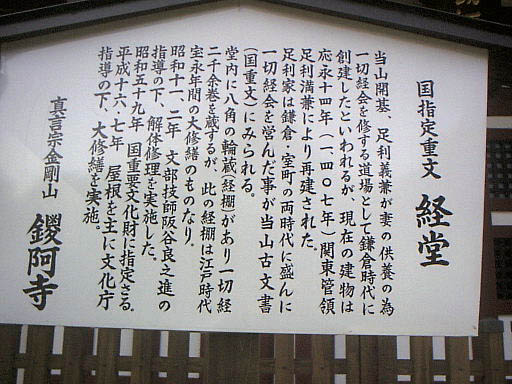 国指定重文 経堂
当山開基、足利義兼が妻の供養の為
一切経会を修する道場として鎌倉時代に
創建したといわれるが、現在の建物は
応永十四年（一四〇七年）関東管領
足利満兼により再建された。
足利家は鎌倉・室町の両時代に盛んに
一切経会を営んだ事が当山古文書
（国重文）にみられる。
堂内に八角の輪蔵（経棚）があり一切経
二千余巻を蔵するが、此の経棚は江戸時代
宝永年間の大修繕のものなり。
昭和十一、二年 文部技師阪谷良之進の
指導の下、解体修理を実施した。
昭和五十九年 国重要文化財に指定さる。
平成十六、七年 屋根を主に文化庁
指導の下、大修繕を実施。
真言宗金剛山 鑁阿寺